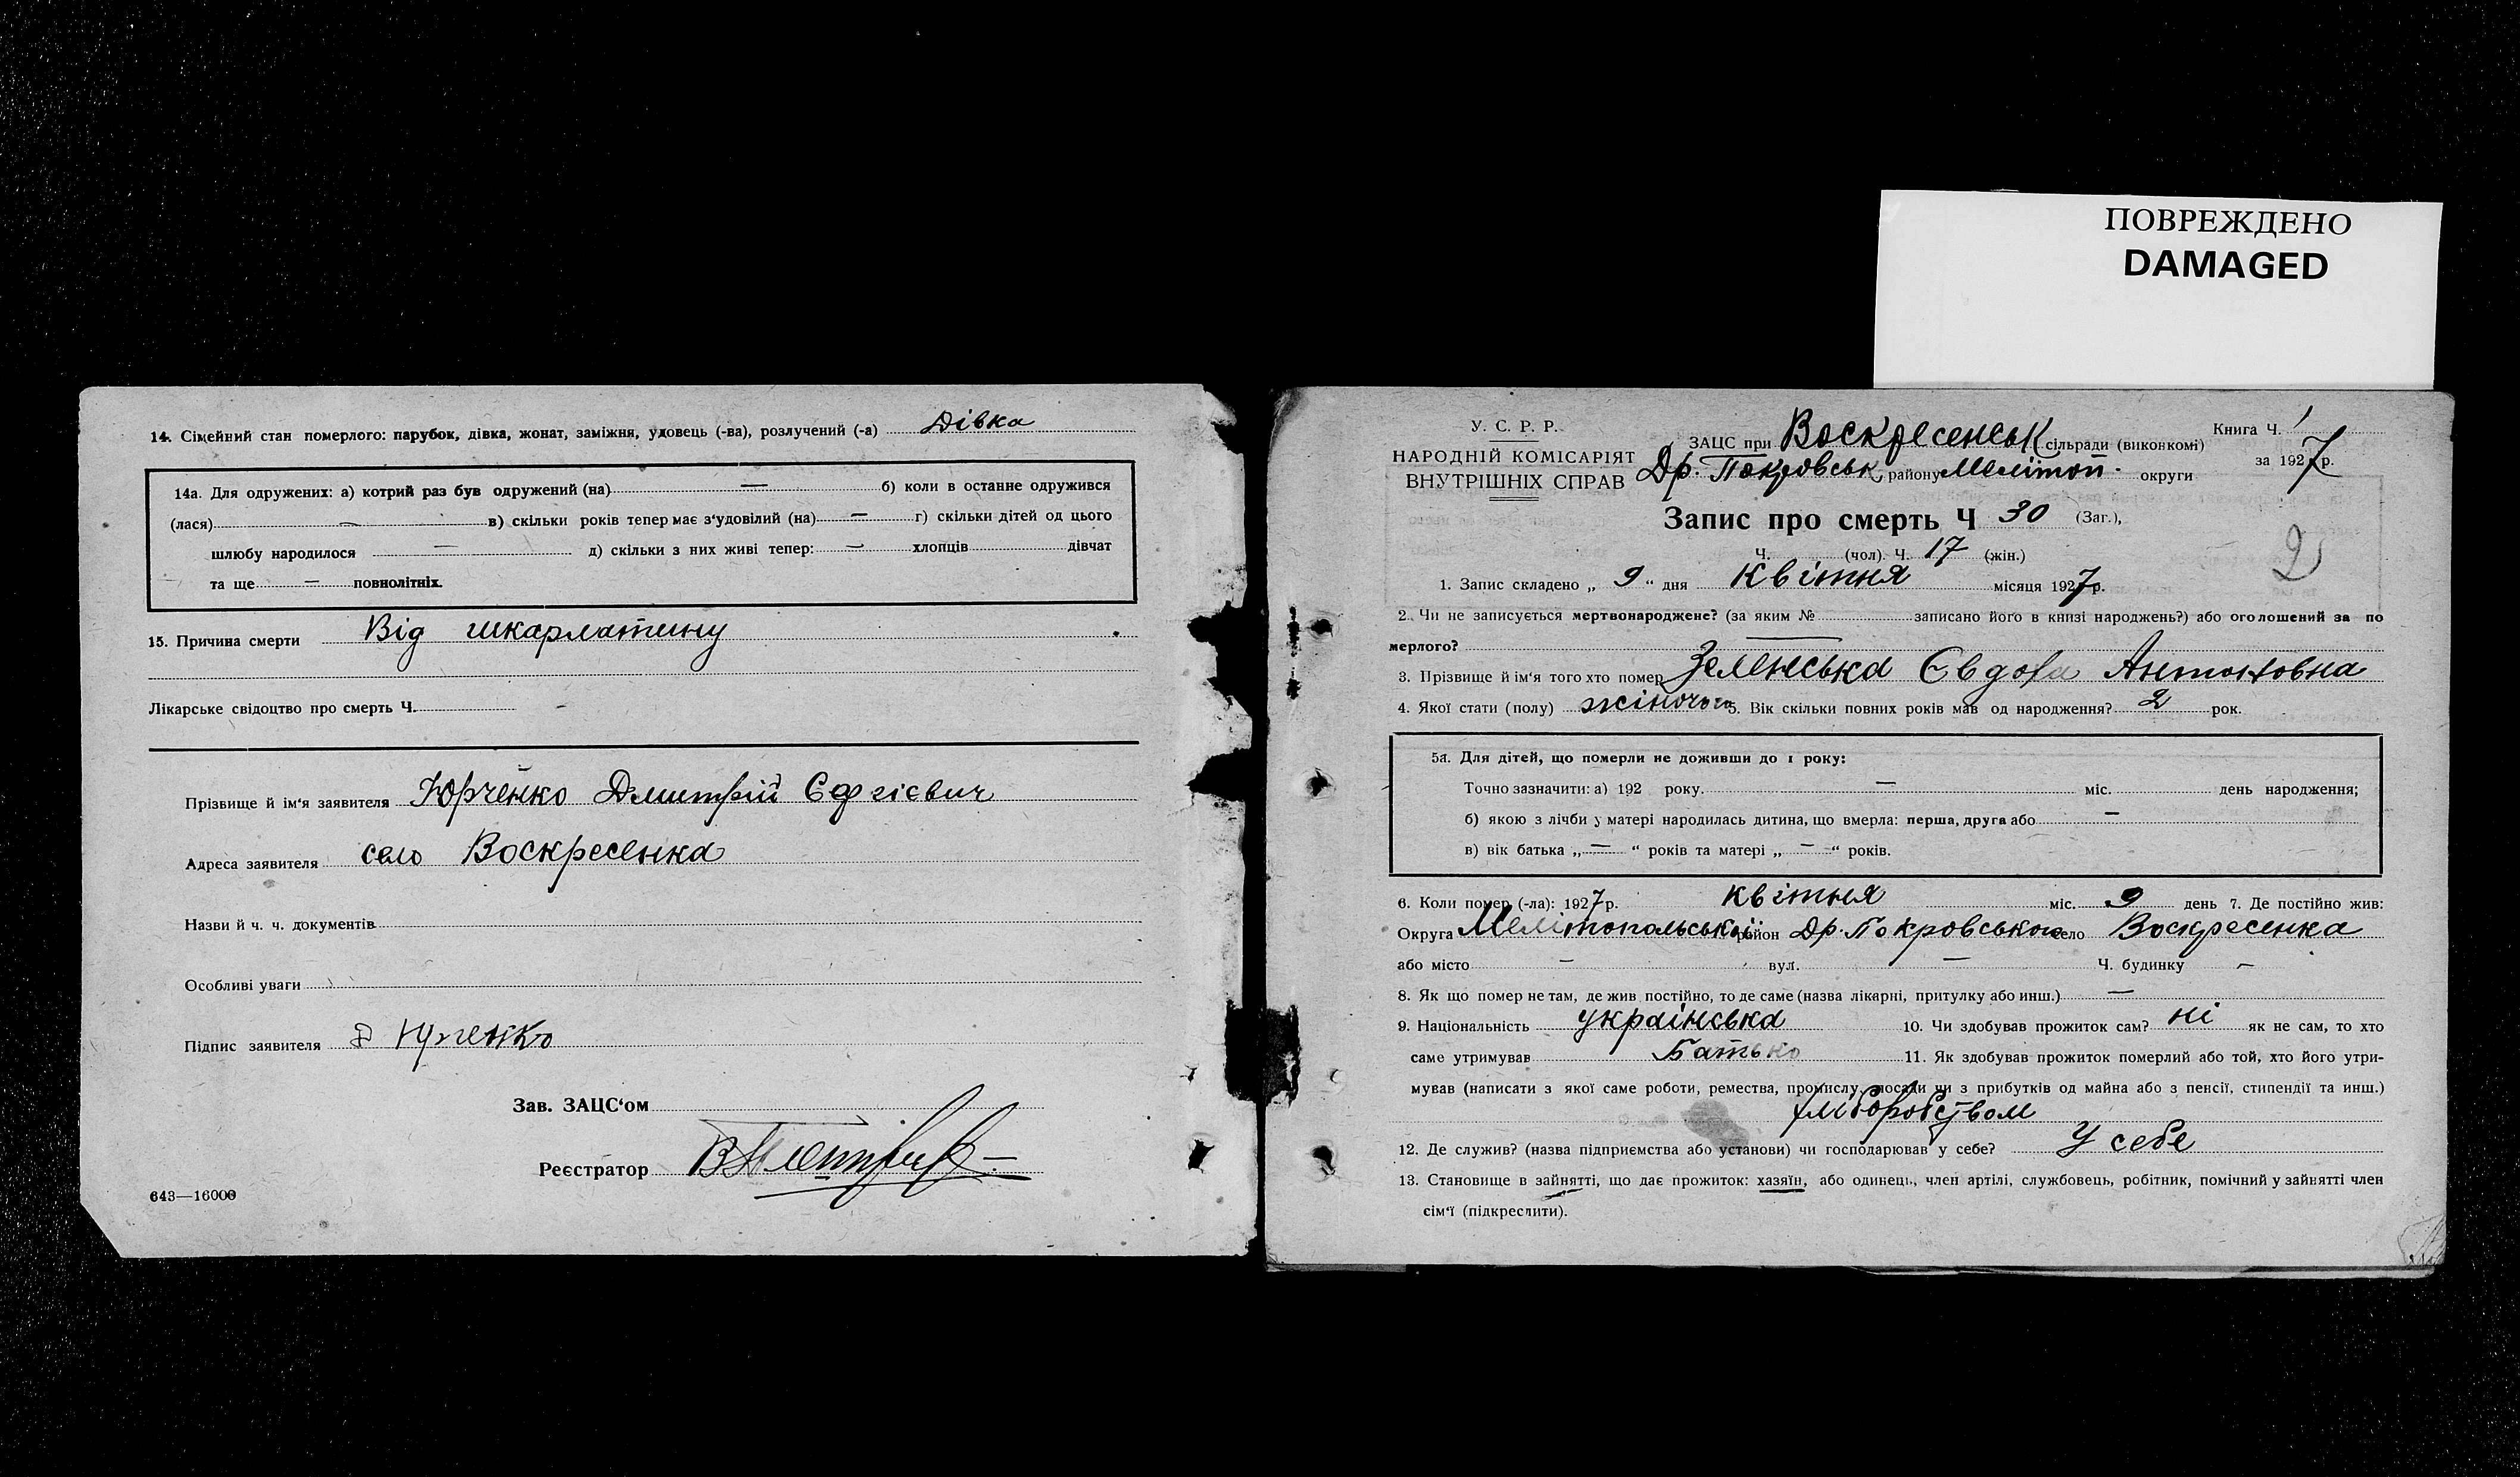 ПОВРЕЖДЕНО
DAMAGED
14. Сімейний стан померлого: парубок, дівка, жонат, заміжня, удовець (-ва), розлучений (-а) Дівка
14а. Для одружених: а) котрий раз був одружений (на) — б) коли в останне одружився
(лася) — в) скільки років тепер має з‘удовілий (на) — г) скільки дітей од цього
шлюбу народилося — д) скільки з них живі тепер: — хлопців дівчат
та ще — повнолітніх.
15. Причина смерти Від шкарлатину
Лікарське свідоцтво про смерть Ч.
Прізвище й ім‘я заявителя Юрченко Дмитрій
Адреса заявителя село Воскресенка
Назви й ч. ч. документів
Особливі уваги
Підпис заявителя Д Юрченко
Зав. ЗАЦС‘ом
Реєстратор
643—16000
У. С. Р. Р.
НАРОДНІЙ КОМІСАРІЯТ
ВНУТРІШНІХ СПРАВ
ЗАЦС при Воскресенськ сільради (виконкомі)
Др. Покровськ району Мелітоп. округи
Книга Ч. 1
за 1927 р.
Запис про смерть Ч 30 (Заг.),
Ч. (чол). Ч. 17 (жін.)
2
1. Запис складено „ 9 “ дня Квітня місяця 1927 р.
2. Чи не записується мертвонароджене? (за яким № записано його в книзі народжень?) або оголошений за по
мерлого?
3. Прізвище й ім‘я того хто помер Зеленська Євдоха Антоновна
4. Якої стати (полу) жіночого 5. Вік скільки повних років мав од народження? 2 рок.
5а. Для дітей, що померли не доживши до 1 року:
Точно зазначити: а) 192 року. — міс. день народження;
б) якою з лічби у матері народилась дитина, що вмерла: перша, друга або —
в) вік батька „ — “ років та матері „ — “ років.
6. Коли помер (-ла): 1927 р. Квітня міс. 9 день 7. Де постійно жив:
Округа Мелітопольської район Др. Покровського село Воскресенка
або місто — вул. — Ч. будинку —
8. Як що помер не там, де жив постійно, то де саме (назва лікарні, притулку або инш.) —
9. Національність українська 10. Чи здобував прожиток сам? ні як не сам, то хто
саме утримував Батько 11. Як здобував прожиток померлий або той, хто його утри-
мував (написати з якої саме роботи, ремества, промислу, посади чи з прибутків од майна або з пенсії, стипендії та инш.)
хліборобством
12. Де служив? (назва підприємства або установи) чи господарював у себе? У себе
13. Становище в зайнятті, що дає прожиток: хазяїн, або одинець, член артілі, службовець, робітник, помічний у зайнятті член
сім‘ї (підкреслити).